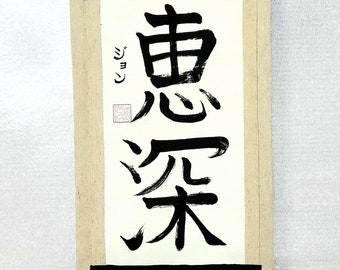 恵深
ジョン